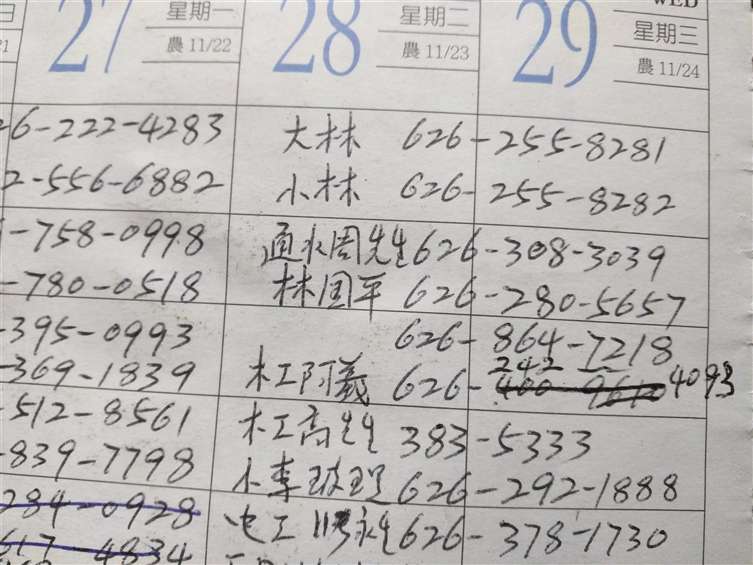 27 星期一 28 星期二 29 WED
農 11/22 農 11/23 星期三
農 11/24
6-222-4283 大林 626-255-8281
2-556-6882 小林 626-255-8282
-758-0998 通水周先生 626-308-3039
-780-0518 林国平 626-280-5657
-395-0993 626-864-7218
-369-1839 木工阿義 626-242 4093
-512-8561 木工高生 383-5333
-839-7798 小李玻理 626-292-1888
284-0928 电工 626-378-1730
617-4834